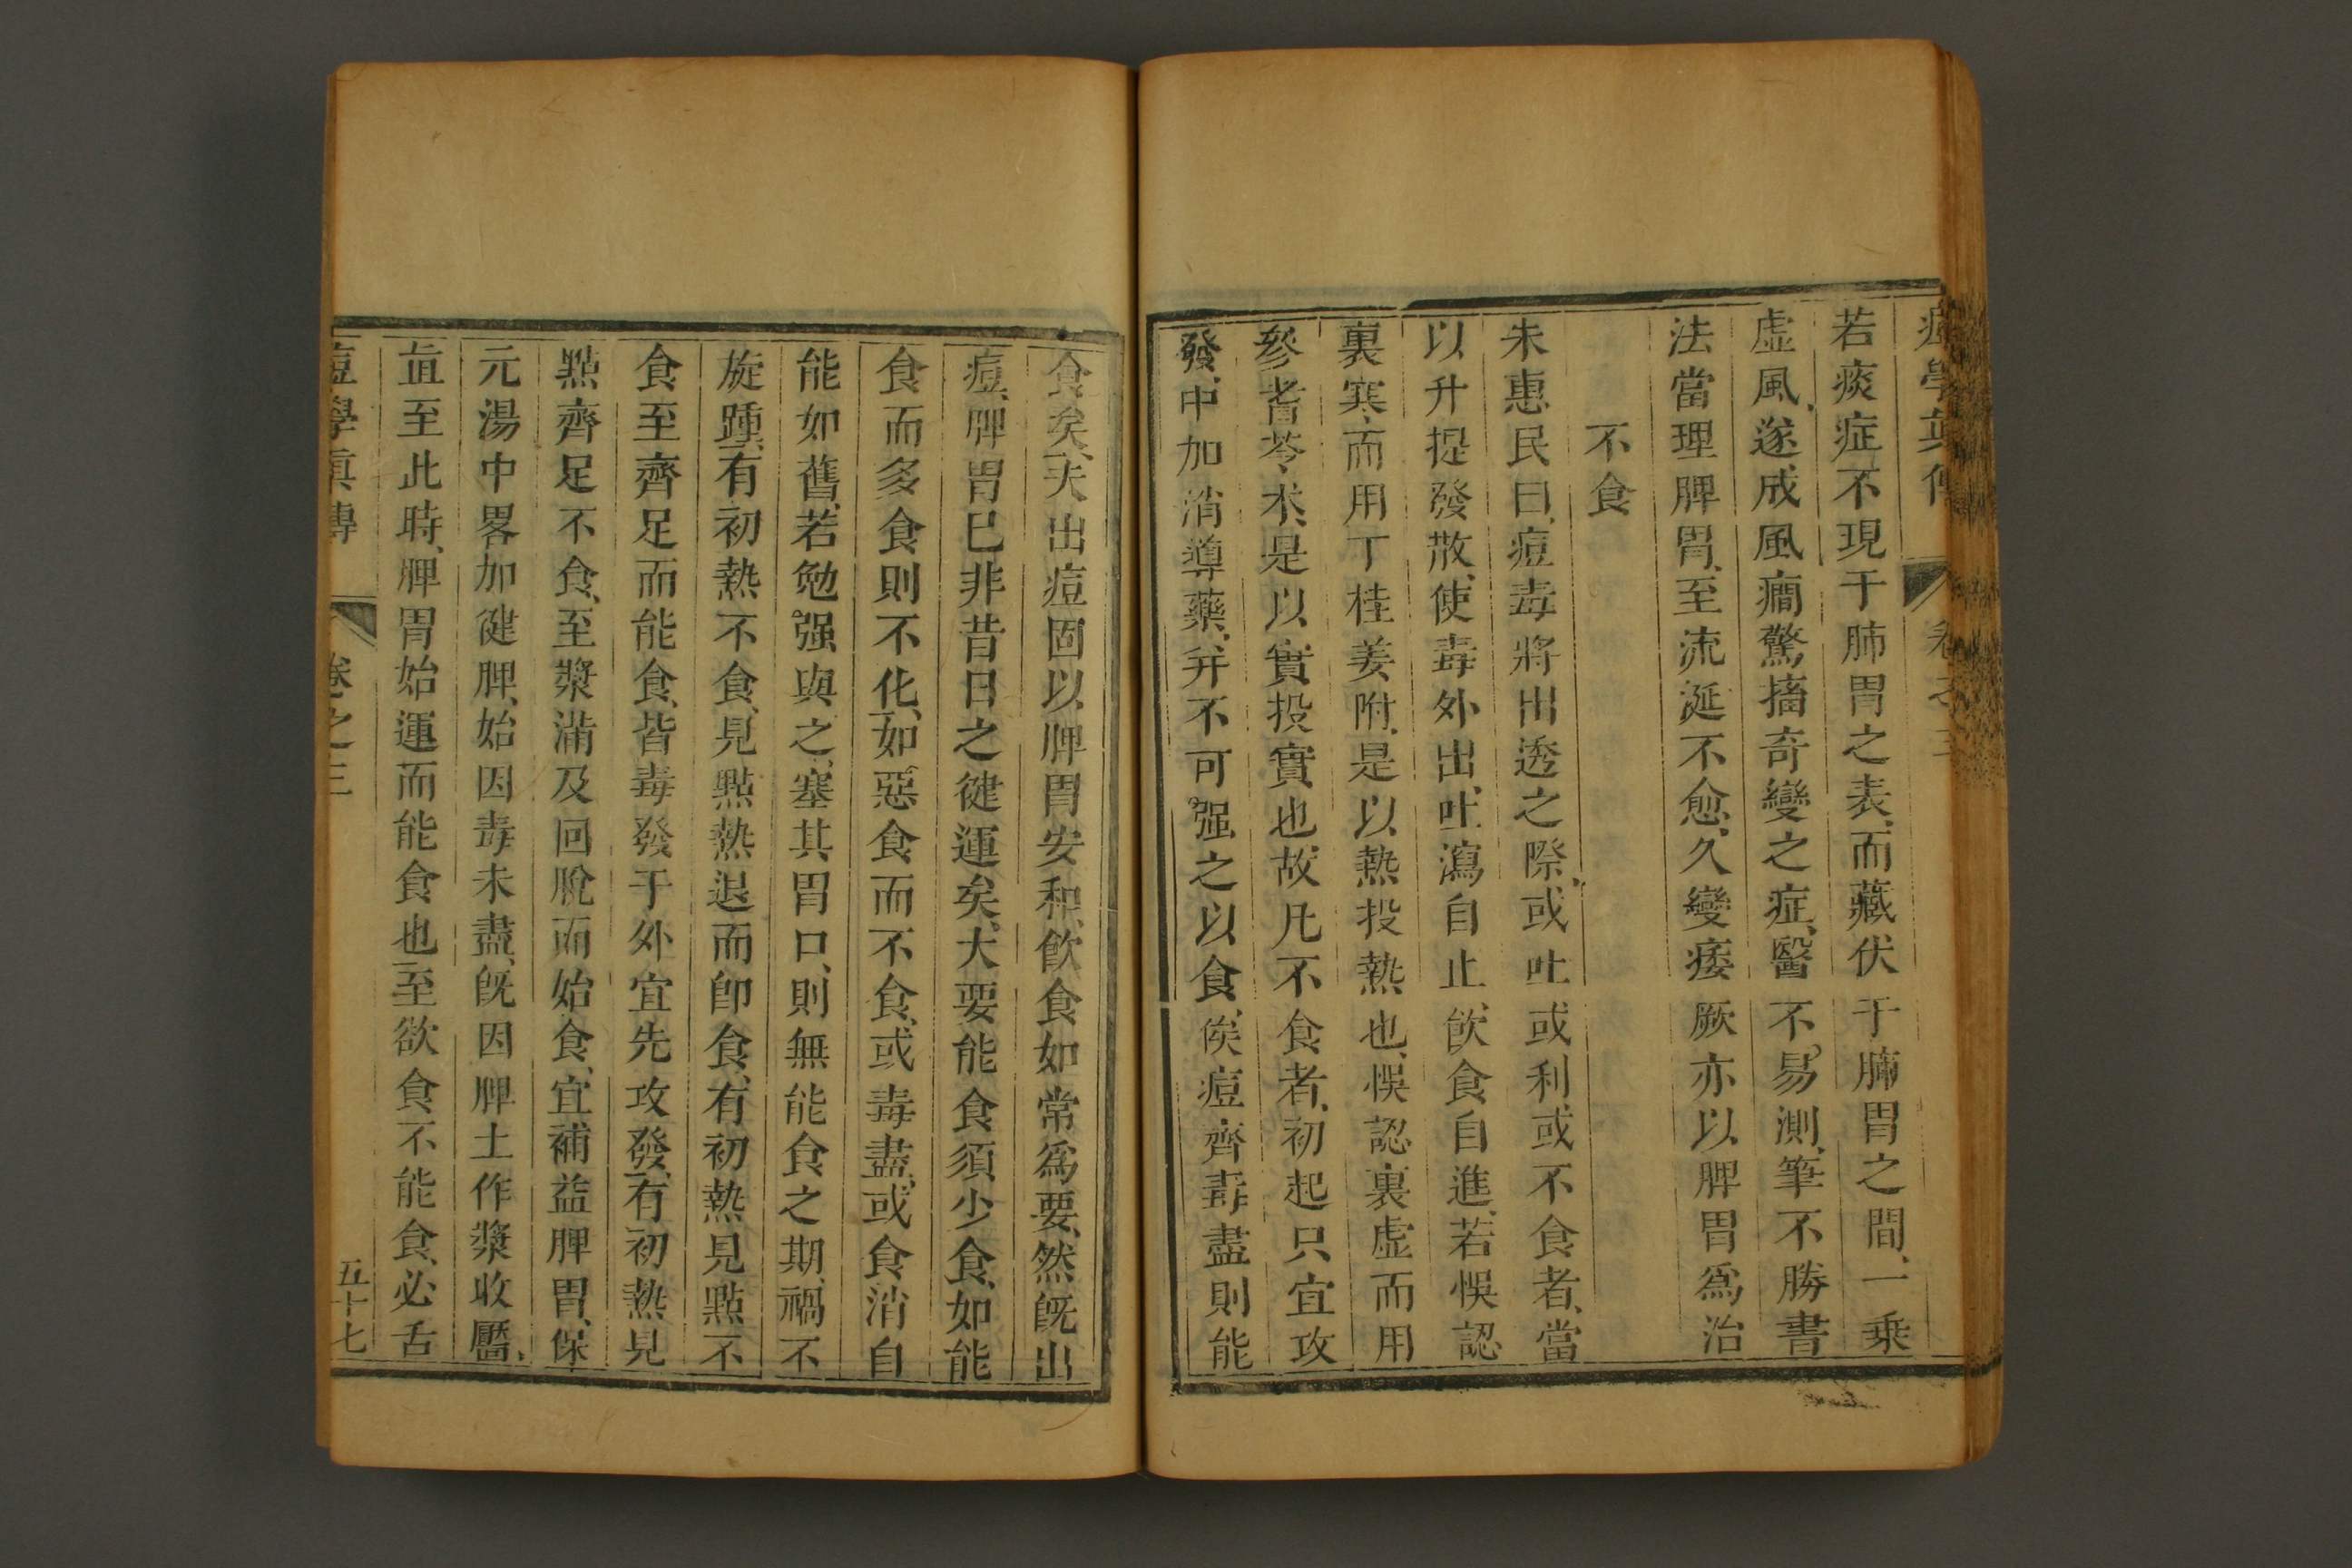 痘學眞傳 卷之三
若痰症不現于肺胃之表、而藏伏于腸胃之間、一乘
虛風、遂成風癇驚搐奇變之症、醫不易測、筆不勝書
法當理脾胃、至流涎不愈、久變痿厥亦以脾胃爲治
不食
朱惠民曰、痘毒將出透之際、或吐或利或不食者、當
以升提發散、使毒外出、吐瀉自止、飮食自進、若悞認
裏寒、而用丁桂姜附、是以熱投熱也、悞認裏虛而用
參耆苓术、是以實投實也、故凡不食者、初起只宜攻
發、中加消導藥、并不可强之以食、俟痘齊毒盡則能
食矣、夫出痘固以脾胃安和、飮食如常爲要、然旣出
痘、脾胃已非昔日之健運矣、大要能食須少食、如能
食而多食則不化、如惡食而不食、或毒盡、或食消自
能如舊、若勉强與之、塞其胃口、則無能食之期、禍不
旋踵、有初熱不食、見點熱退而卽食、有初熱見點不
食至齊足而能食、皆毒發于外宜先攻發、有初熱見
點齊足不食、至漿滿及回脫而始食、宜補益脾胃、保
元湯中畧加健脾、始因毒未盡、旣因脾土作漿收靨、
直至此時、脾胃始運而能食也至欲食不能食、必舌
痘學眞傳 卷之三 五十七